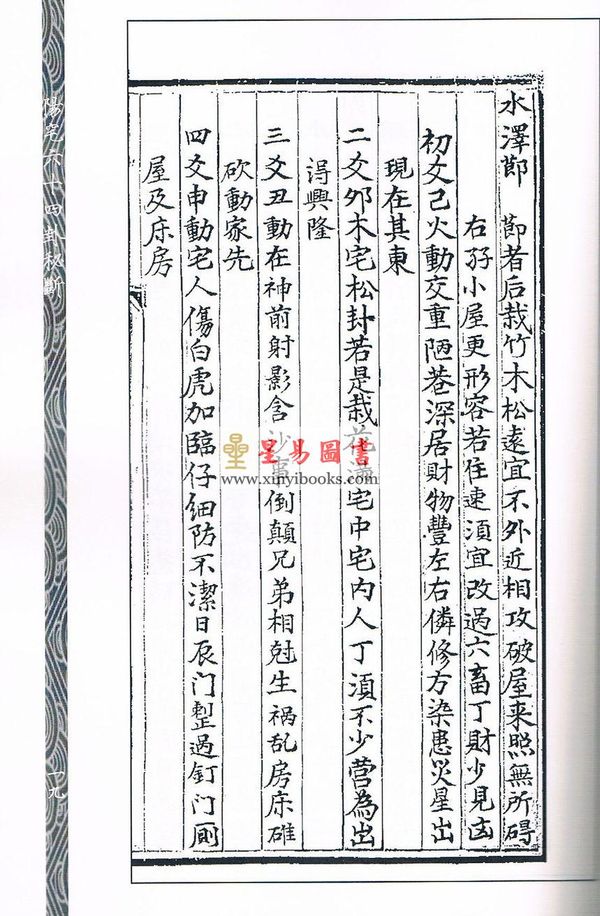 水澤節　節者后栽竹木松遠宜不外近相攻破屋来照無所碍
右孖小屋更形容若住速須宜改過六畜丁財少見凶
初爻己火動交重陋巷深居財物豐左右憐修方染患災星出
現在其東
二爻夘木宅松封若是栽宅中宅內人丁須不少营為出
得興隆
三爻丑動在神前射影含沙倒顛兄弟相尅生禍乱房床碓
砍動家先
四爻申動宅人傷白虎加臨仔細防不潔日辰门整過釘门厠
屋及床房
陽宅六十四卦秘斷
一九
星易圖書
www.xinyibooks.com